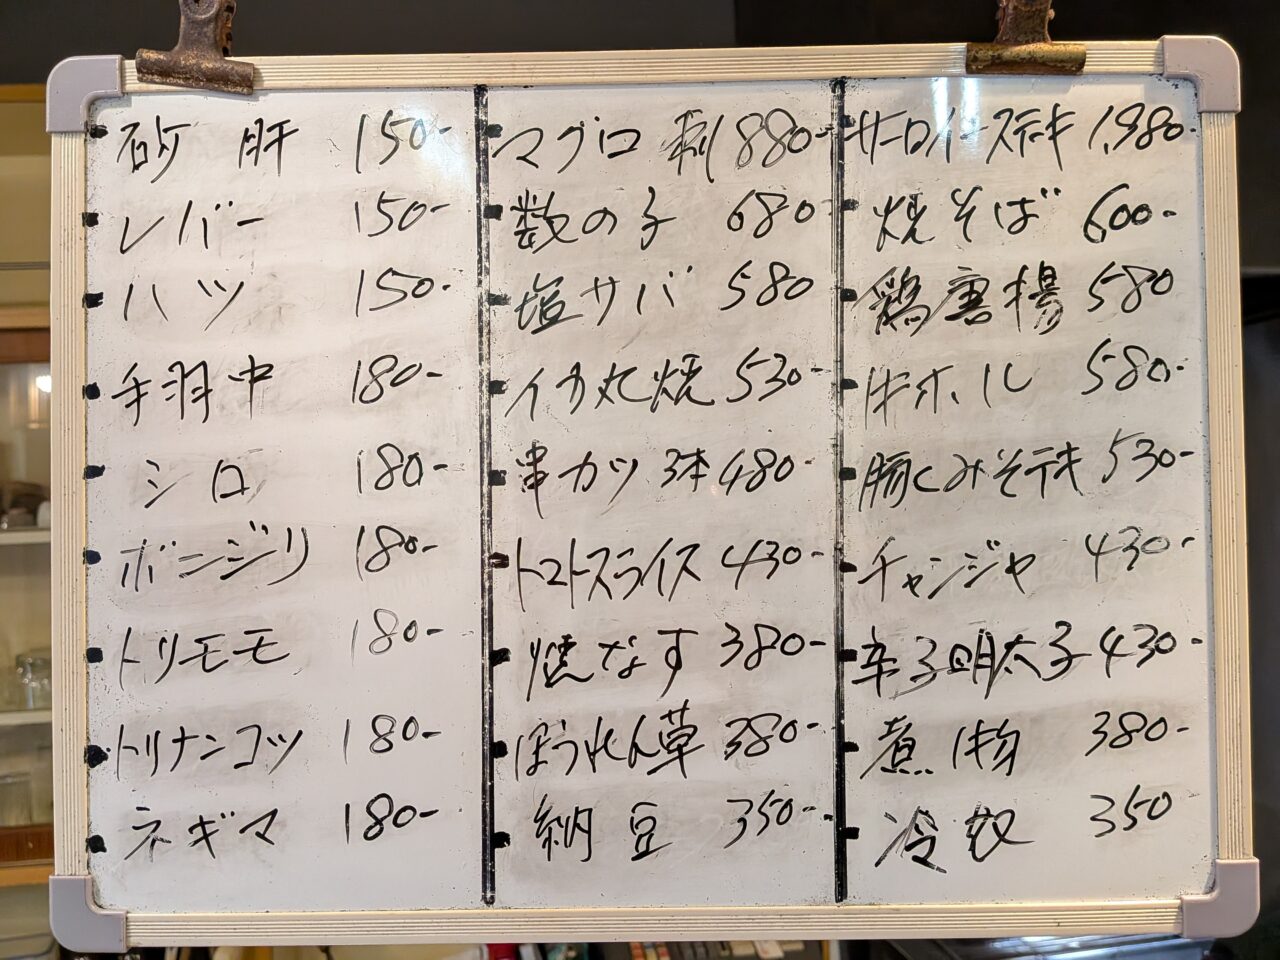 砂肝 150-
レバー 150-
ハツ 150-
手羽中 180-
シロ 180-
ボンジリ 180-
トリモモ 180-
トリナンコツ 180-
ネギマ 180-
マグロ刺 880-
数の子 680
塩サバ 580
イカ丸焼 530-
串カツ 3本 480-
トマトスライス 430-
焼なす 380-
ほうれん草 380-
納豆 350-
サーロインステーキ 1,980-
焼そば 600-
鶏唐揚 580
牛ホル 580-
豚くみそテキ 530-
チャンジャ 430-
辛子明太子 430-
煮物 380-
冷奴 350